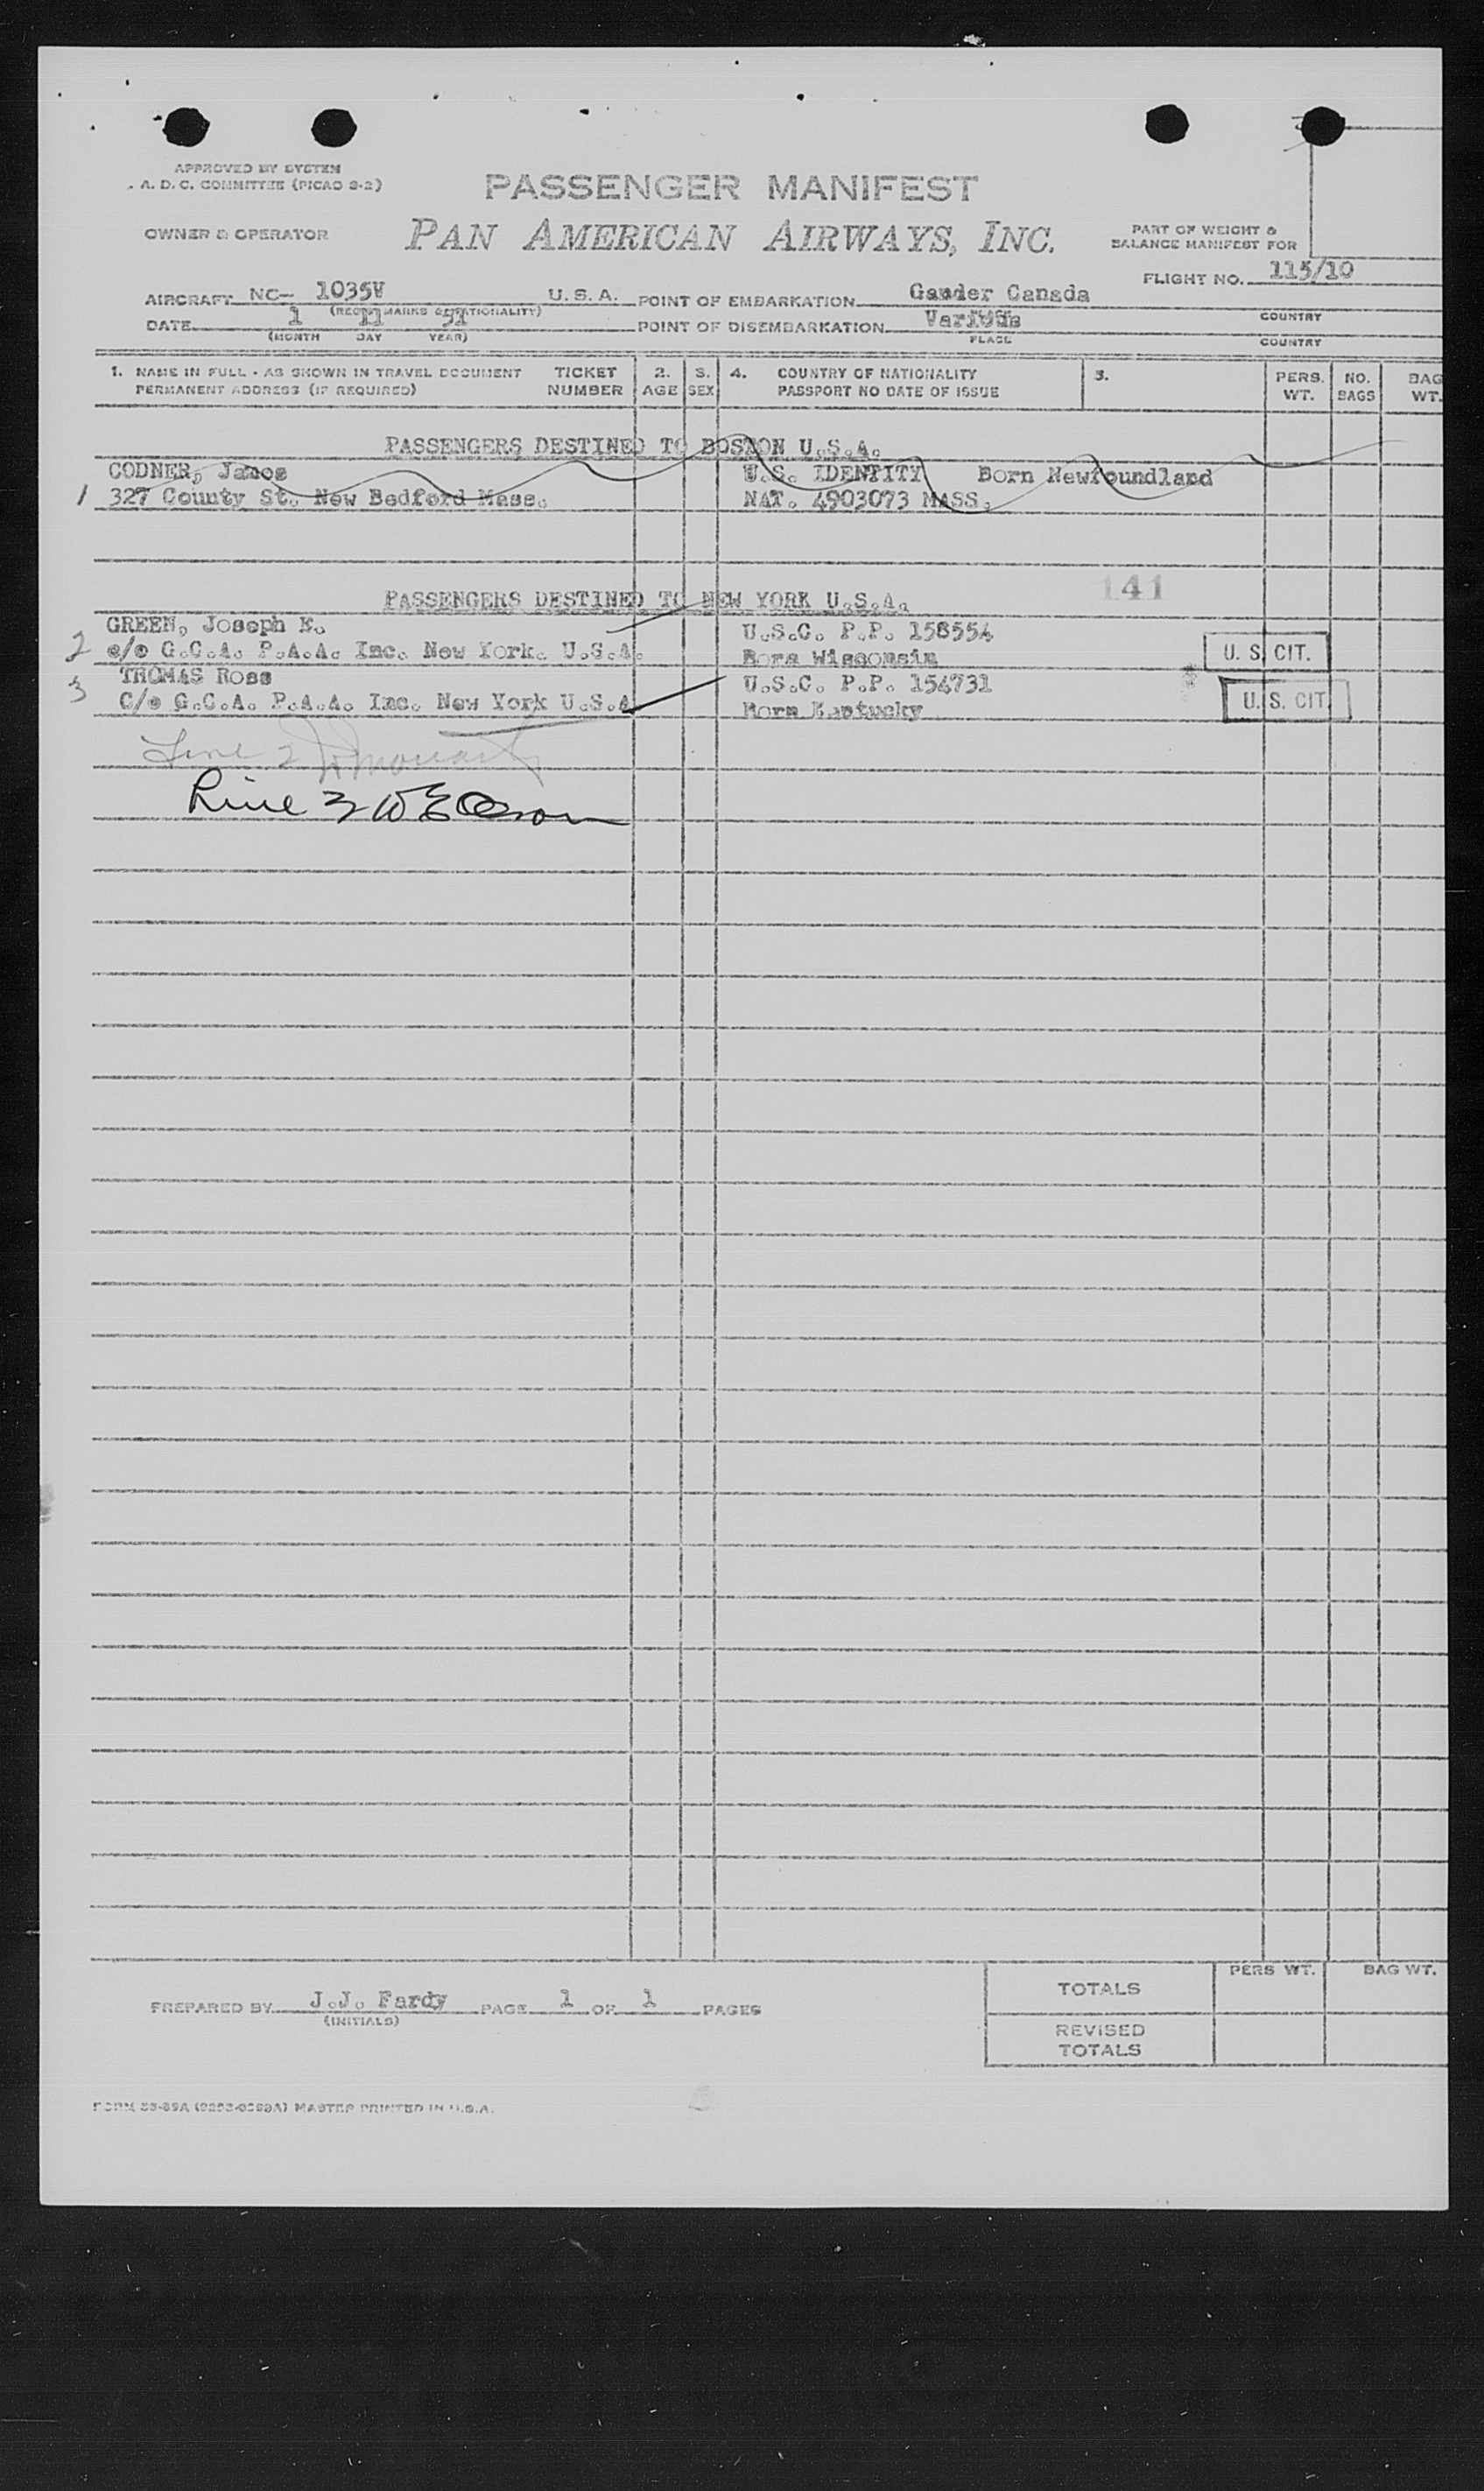 APPROVED BY SYSTEM
A. D. C. COMMITTEE (PICAO S-2)
PASSENGER MANIFEST
OWNER & OPERATOR
PAN AMERICAN AIRWAYS, INC.
PART OF WEIGHT &
BALANCE MANIFEST FOR
FLIGHT NO. 115/10
AIRCRAFT NC- 1035V U. S. A. POINT OF EMBARKATION Gander Canada
DATE 1 11 51 POINT OF DISEMBARKATION Various
(MONTH DAY YEAR) PLACE COUNTRY
COUNTRY
1. NAME IN FULL - AS SHOWN IN TRAVEL DOCUMENT TICKET 2. 3. 4. COUNTRY OF NATIONALITY 5. PERS. NO. BAG
PERMANENT ADDRESS (IF REQUIRED) NUMBER AGE SEX PASSPORT NO DATE OF ISSUE WT. BAGS WT.
PASSENGERS DESTINED TO BOSTON U.S.A.
CODNER, James U.S. IDENTITY Born Newfoundland
1 327 County St. New Bedford Mass. NAT. 4903073 MASS.
141
PASSENGERS DESTINED TO NEW YORK U.S.A.
GREEN, Joseph E. U.S.C. P.P. 158554
2 c/o G.C.A. P.A.A. Inc. New York. U.S.A. Born Wisconsin U. S. CIT.
THOMAS Ross U.S.C. P.P. 154731
3 C/o G.C.A. P.A.A. Inc. New York U.S.A Born Kentucky U. S. CIT
Line 2
Line 3 W E Olson
PREPARED BY J.J. Fardy PAGE 1 OF 1 PAGES
(INITIALS)
PERS WT. BAG WT.
TOTALS
REVISED
TOTALS
MASTER PRINTED IN U.S.A.